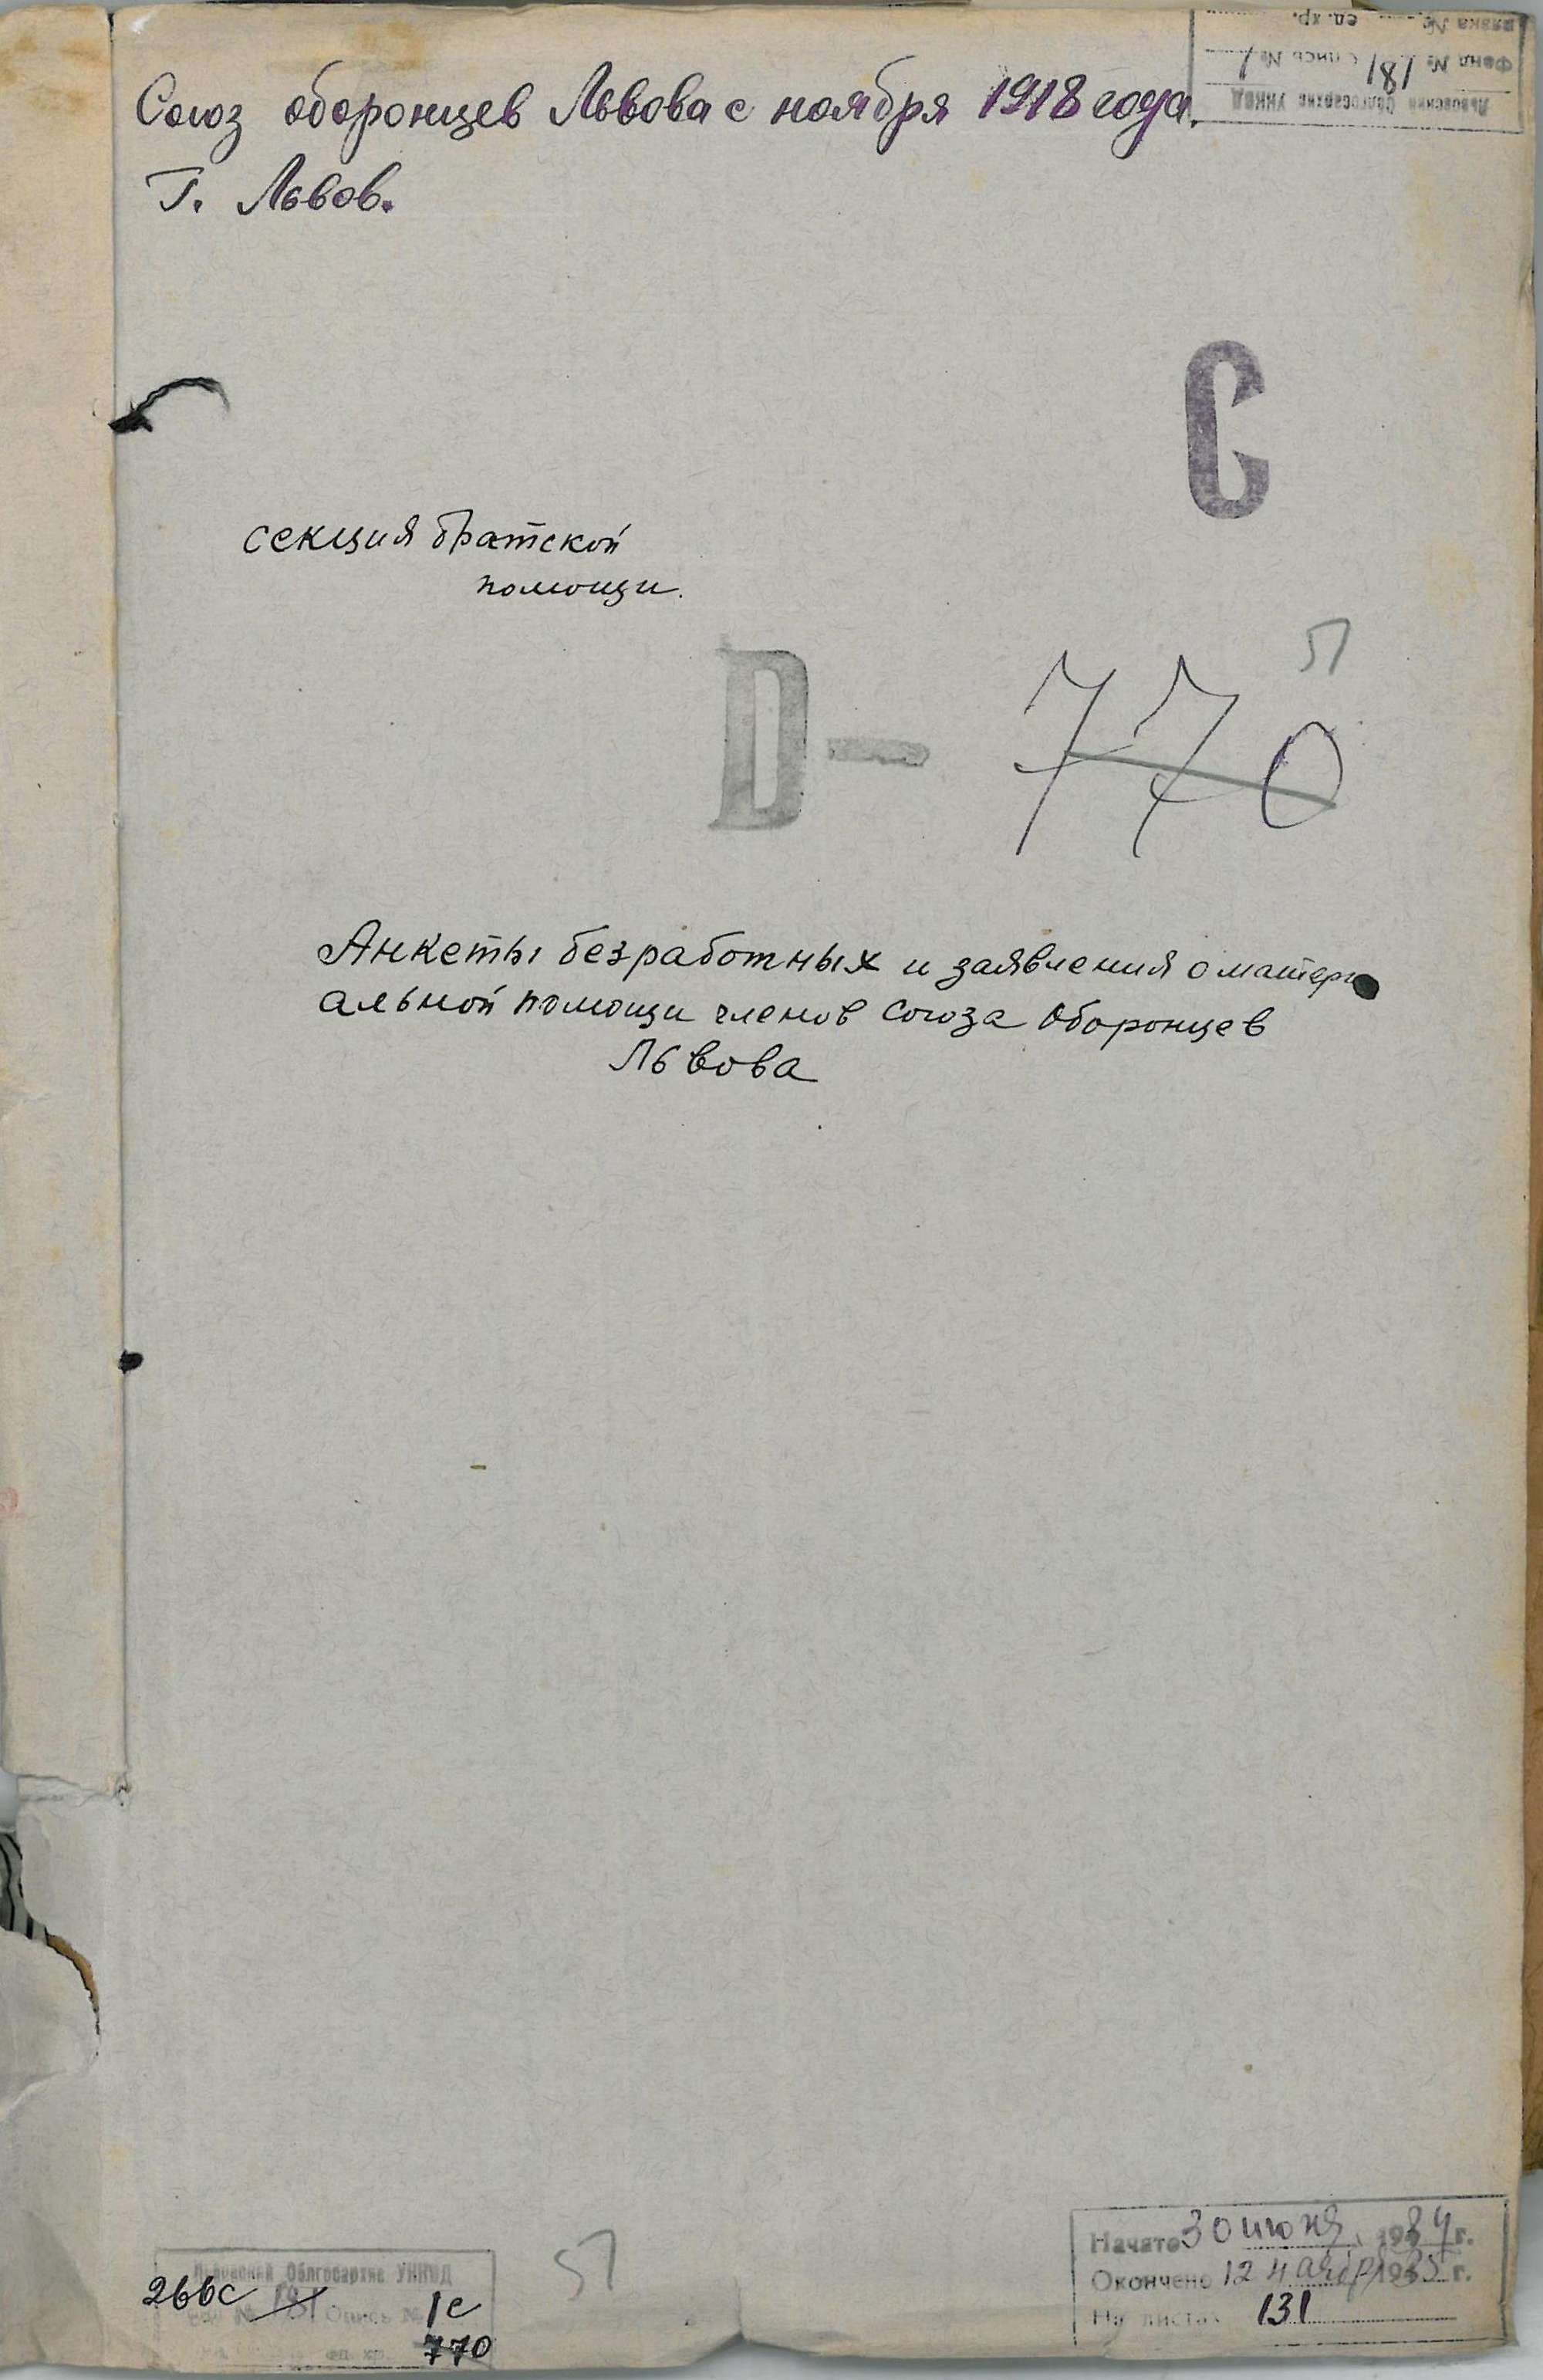 Львовский Облгосархив УНКВД
Фонд № 181 Опись № 1
Связка № ед. хр.
Союз оборонцев Львова с ноября 1918 года.
Г. Львов.
С
секция братской
помощи.
51
D — 770
Анкеты безработных и заявления о матери
альной помощи членов Союза Оборонцев
Львова
51
Львовский Облгосархив УНКВД
266с 181 Опись № 1с
ед. хр. 770
Начато 30 июня 1934 г.
Окончено 12 1935 г.
На листах 131